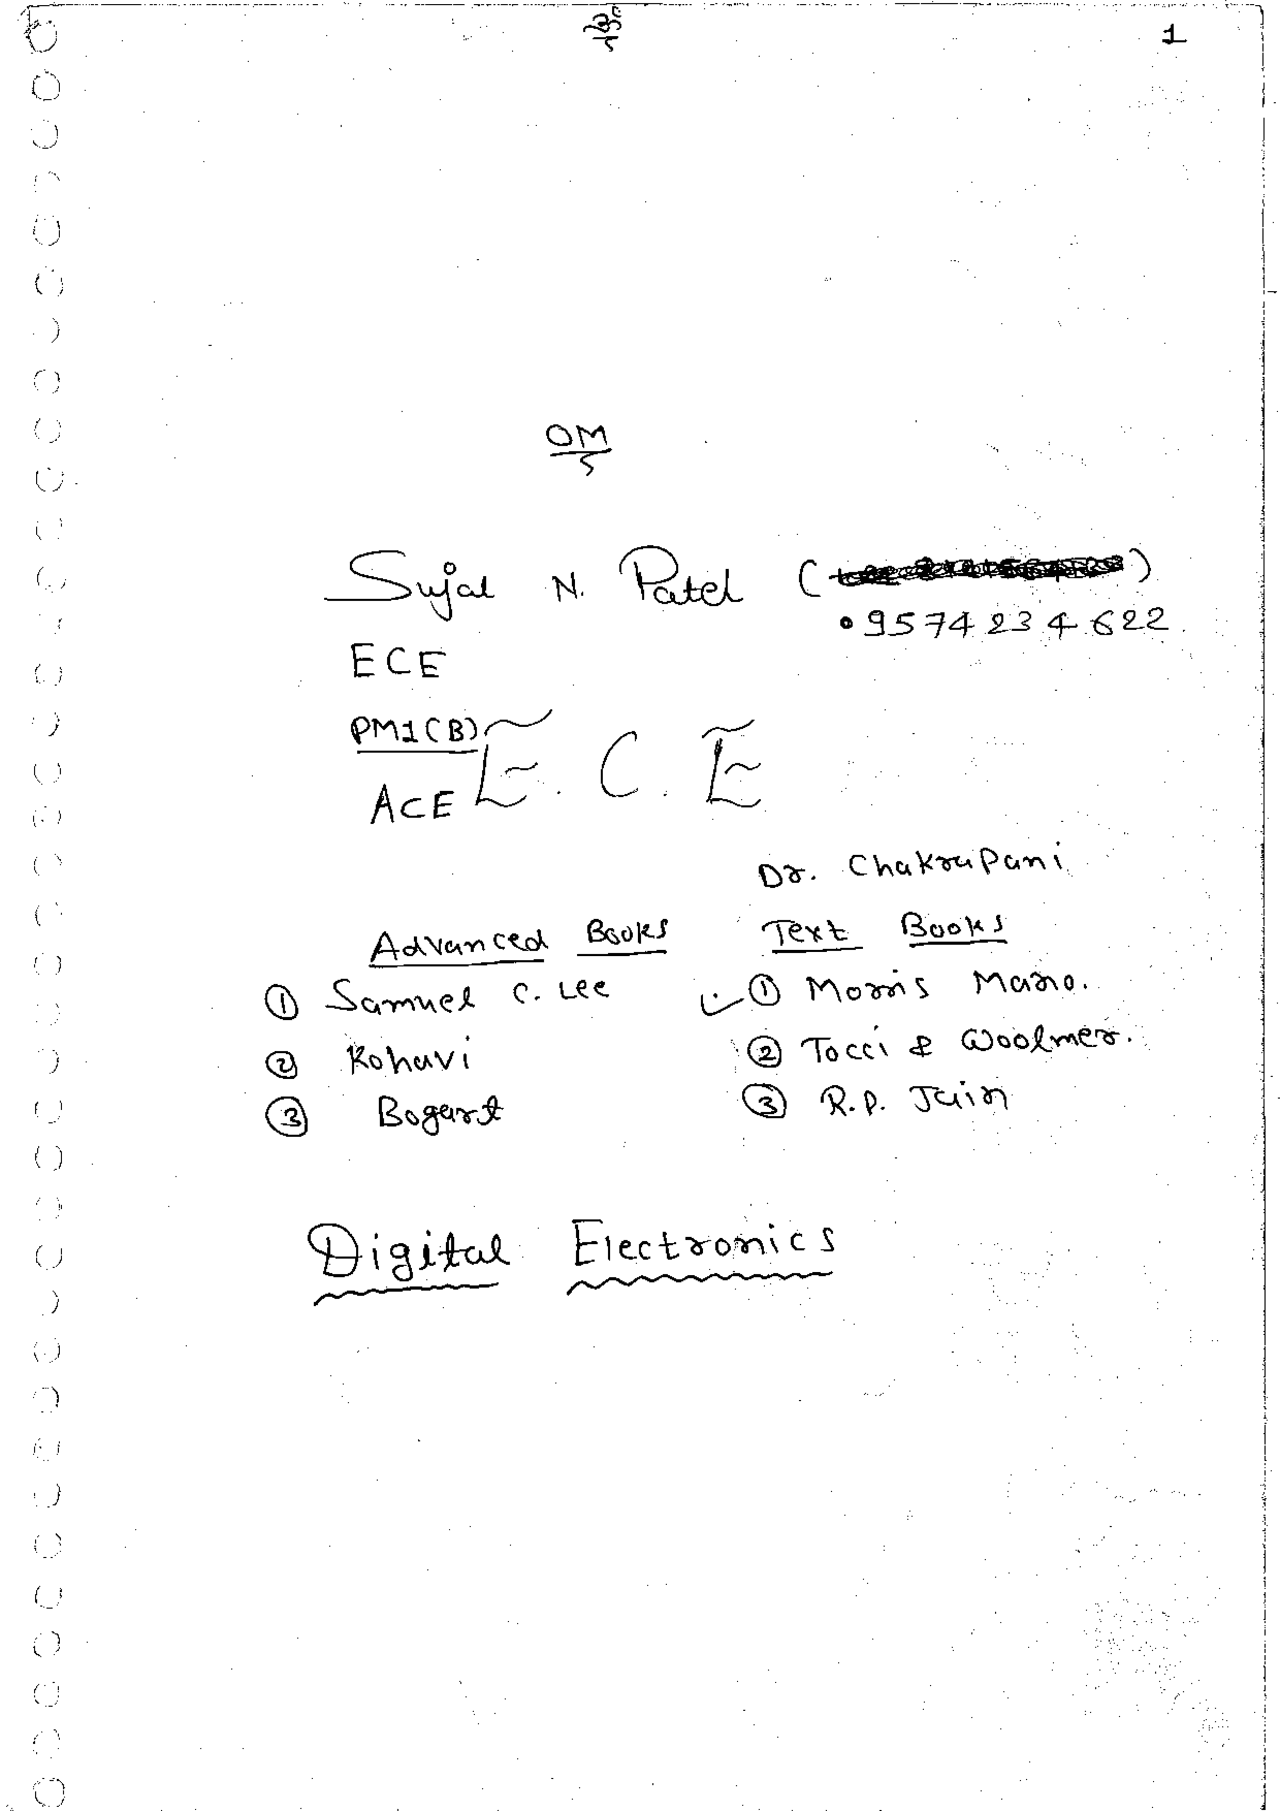 1
OM
Sujal N. Patel (
9574234622
ECE
PM1(B)
E. C. E
ACE
Dr. Chakrapani
Advanced Books Text Books
① Samuel C. Lee ① Morris Mano.
② Kohavi ② Tocci & Woolmer.
③ Bogart ③ R.P. Jain
Digital Electronics